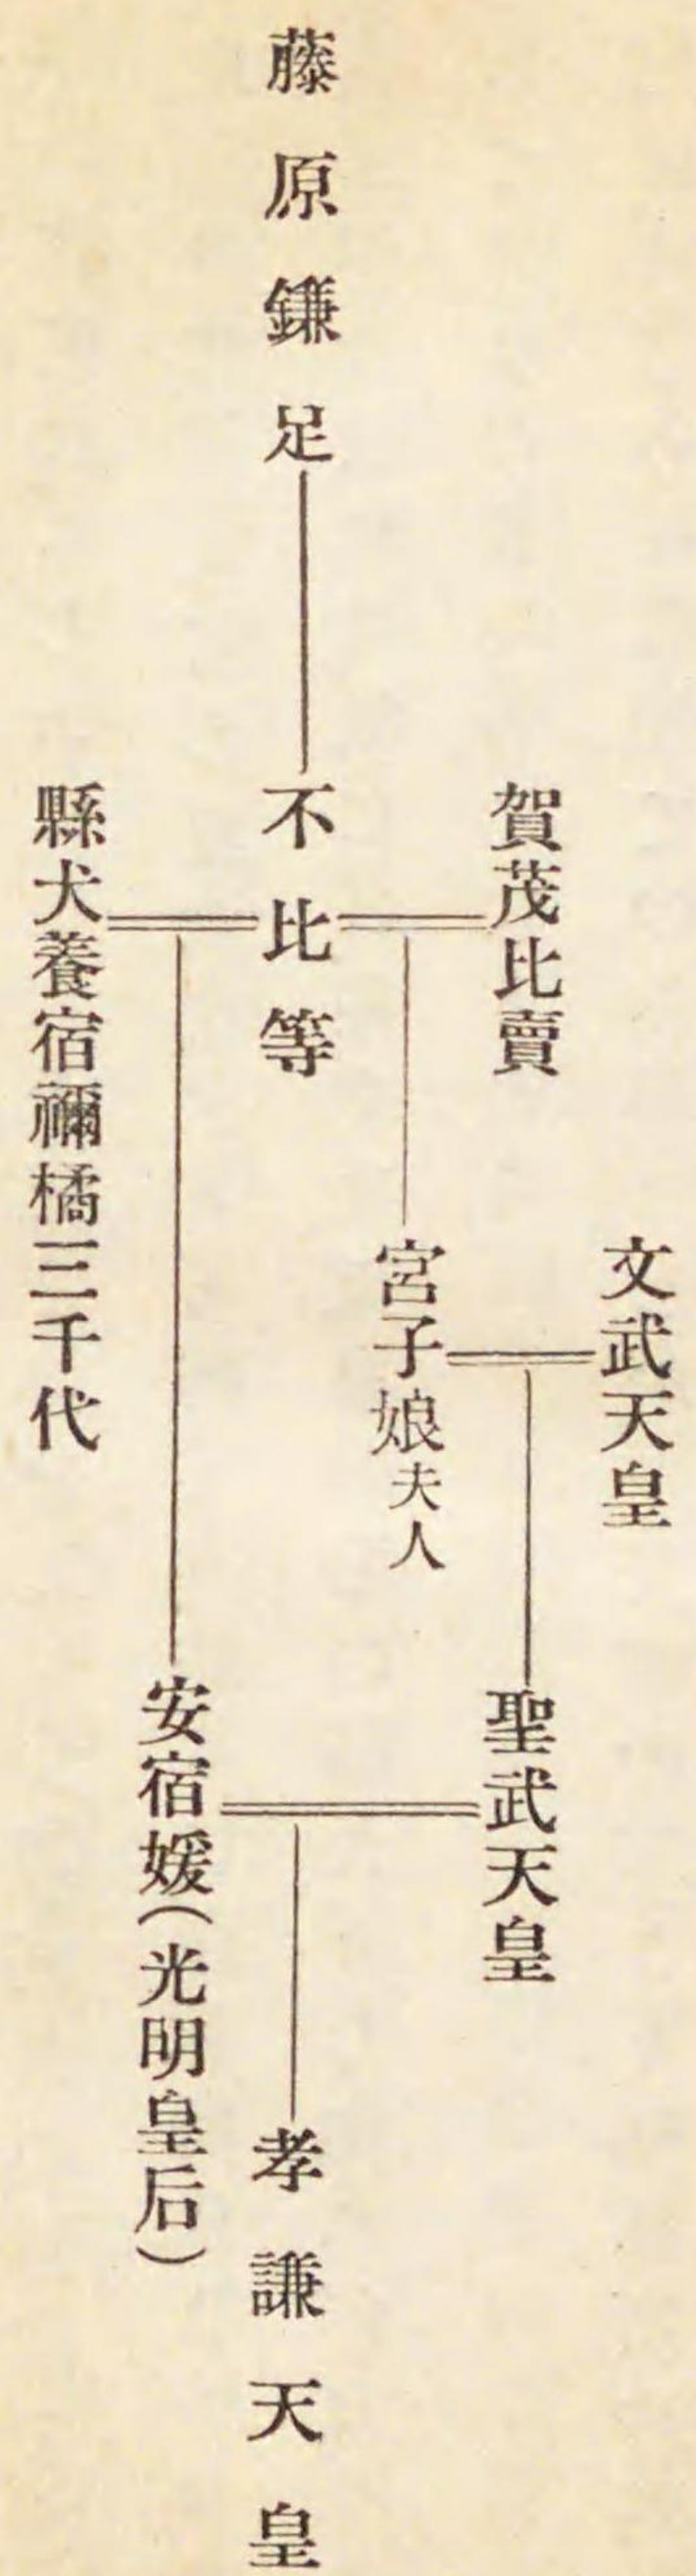 文武天皇
賀茂比賣
聖武天皇
宮子娘夫人
藤原鎌足
不比等
孝謙天皇
安宿媛(光明皇后)
縣犬養宿禰橘三千代